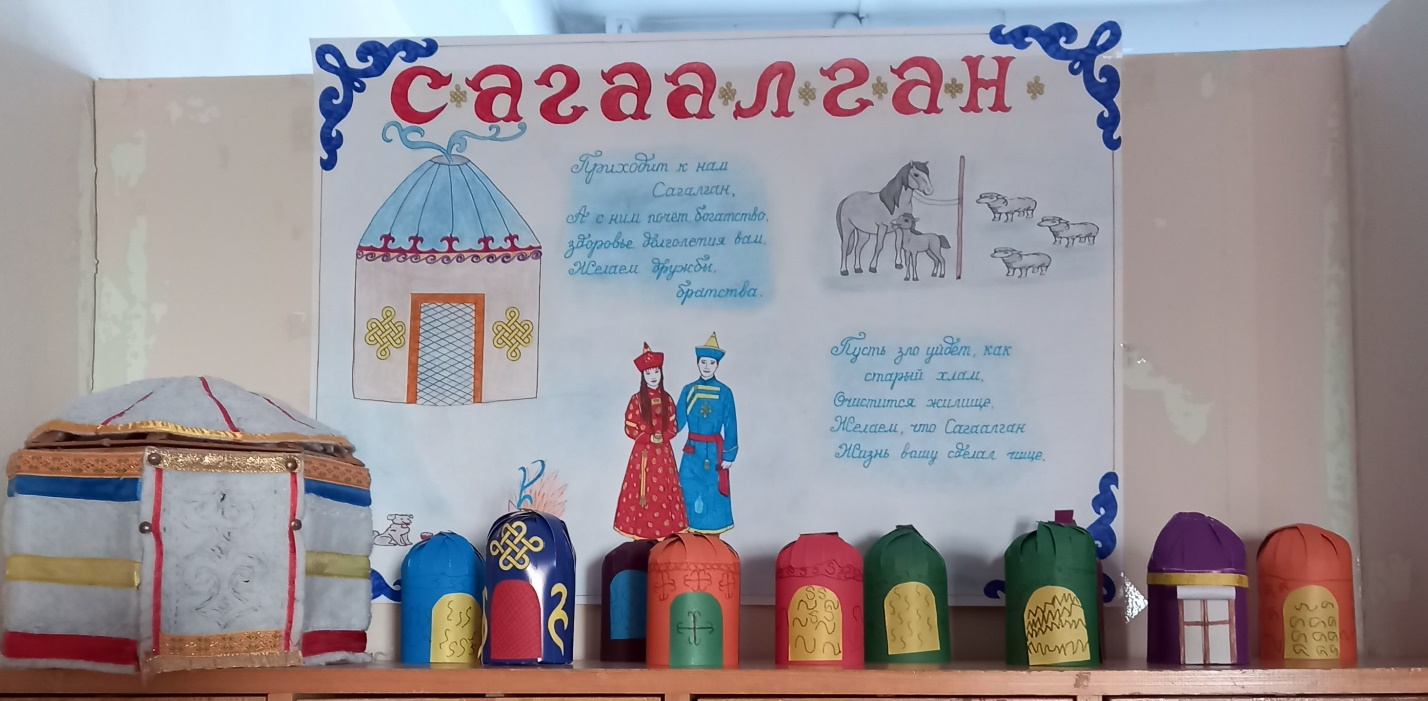 Сагаалган
Приходит к нам
Сагалган,
А с ним почёт богатство,
здоровье долголетия вам,
Желаем дружбы,
братства.
Пусть зло уйдёт, как
старый хлам,
Очистится жилище,
Желаем, что Сагаалган
Жизнь вашу сделал чище.